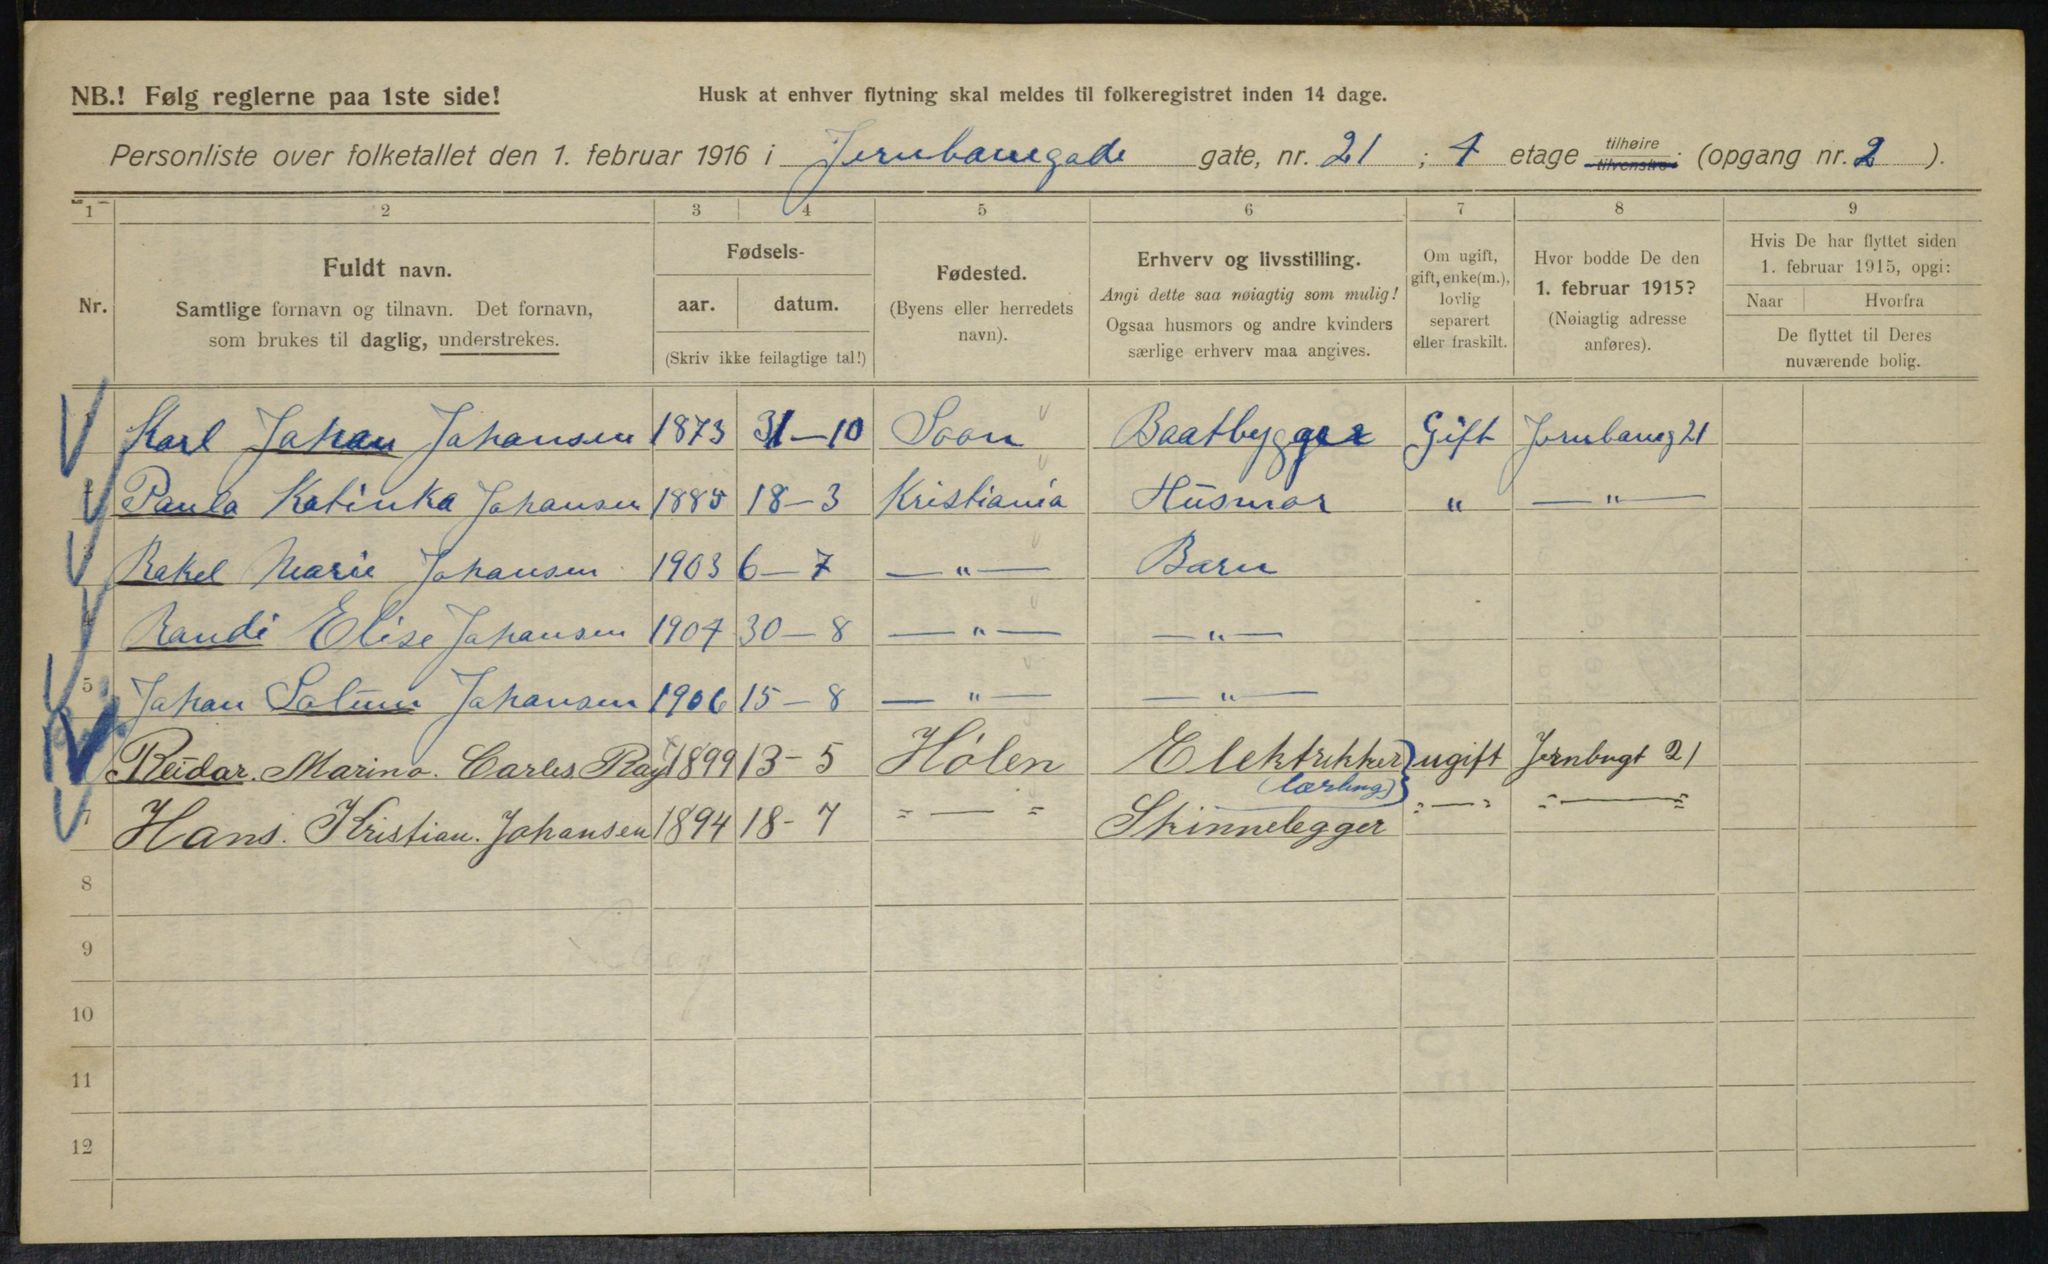 NB.! Følg reglerne paa 1ste side!
Husk at enhver flytning skal meldes til folkeregistret inden 14 dage.
Personliste over folketallet den 1. februar 1916 i Jernbanegade gate, nr. 21 ; 4 etage tilhøire tilvenstre. (opgang nr. 2 ).
1 2 3 4 5 6 7 8 9
Nr.
Fuldt navn.
Samtlige fornavn og tilnavn. Det fornavn,
som brukes til daglig, understrekes.
Fødsels-
aar. datum.
(Skriv ikke feilagtige tal!)
Fødested.
(Byens eller herredets
navn).
Erhverv og livsstilling.
Angi dette saa nøiagtig som mulig!
Ogsaa husmors og andre kvinders
særlige erhverv maa angives.
Om ugift,
gift, enke(m.),
lovlig
separert
eller fraskilt.
Hvor bodde De den
1. februar 1915?
(Nøiagtig adresse
anføres).
Hvis De har flyttet siden
1. februar 1915, opgi:
Naar Hvorfra
De flyttet til Deres
nuværende bolig.
Karl Johan Johansen 1873 31-10 Soon Baatbygger Gift Jernbaneg 21
Paula Katinka Johansen 1885 18-3 Kristiania Husmor " — " —
Rakel Marie Johansen 1903 6-7 — " — Barn
Randi Elise Johansen 1907 30-8 — " — — " —
5 Johan Johansen 1906 15-8 — " — — " —
Reidar. Marino. Carles. 1899 13-5 Hølen Elektrikker ugift Jernbngt 21
(lærling)
7 Hans. Kristian. Johansen 1894 18-7 " — " Skinnelegger " — " " — "
8
9
10
11
12